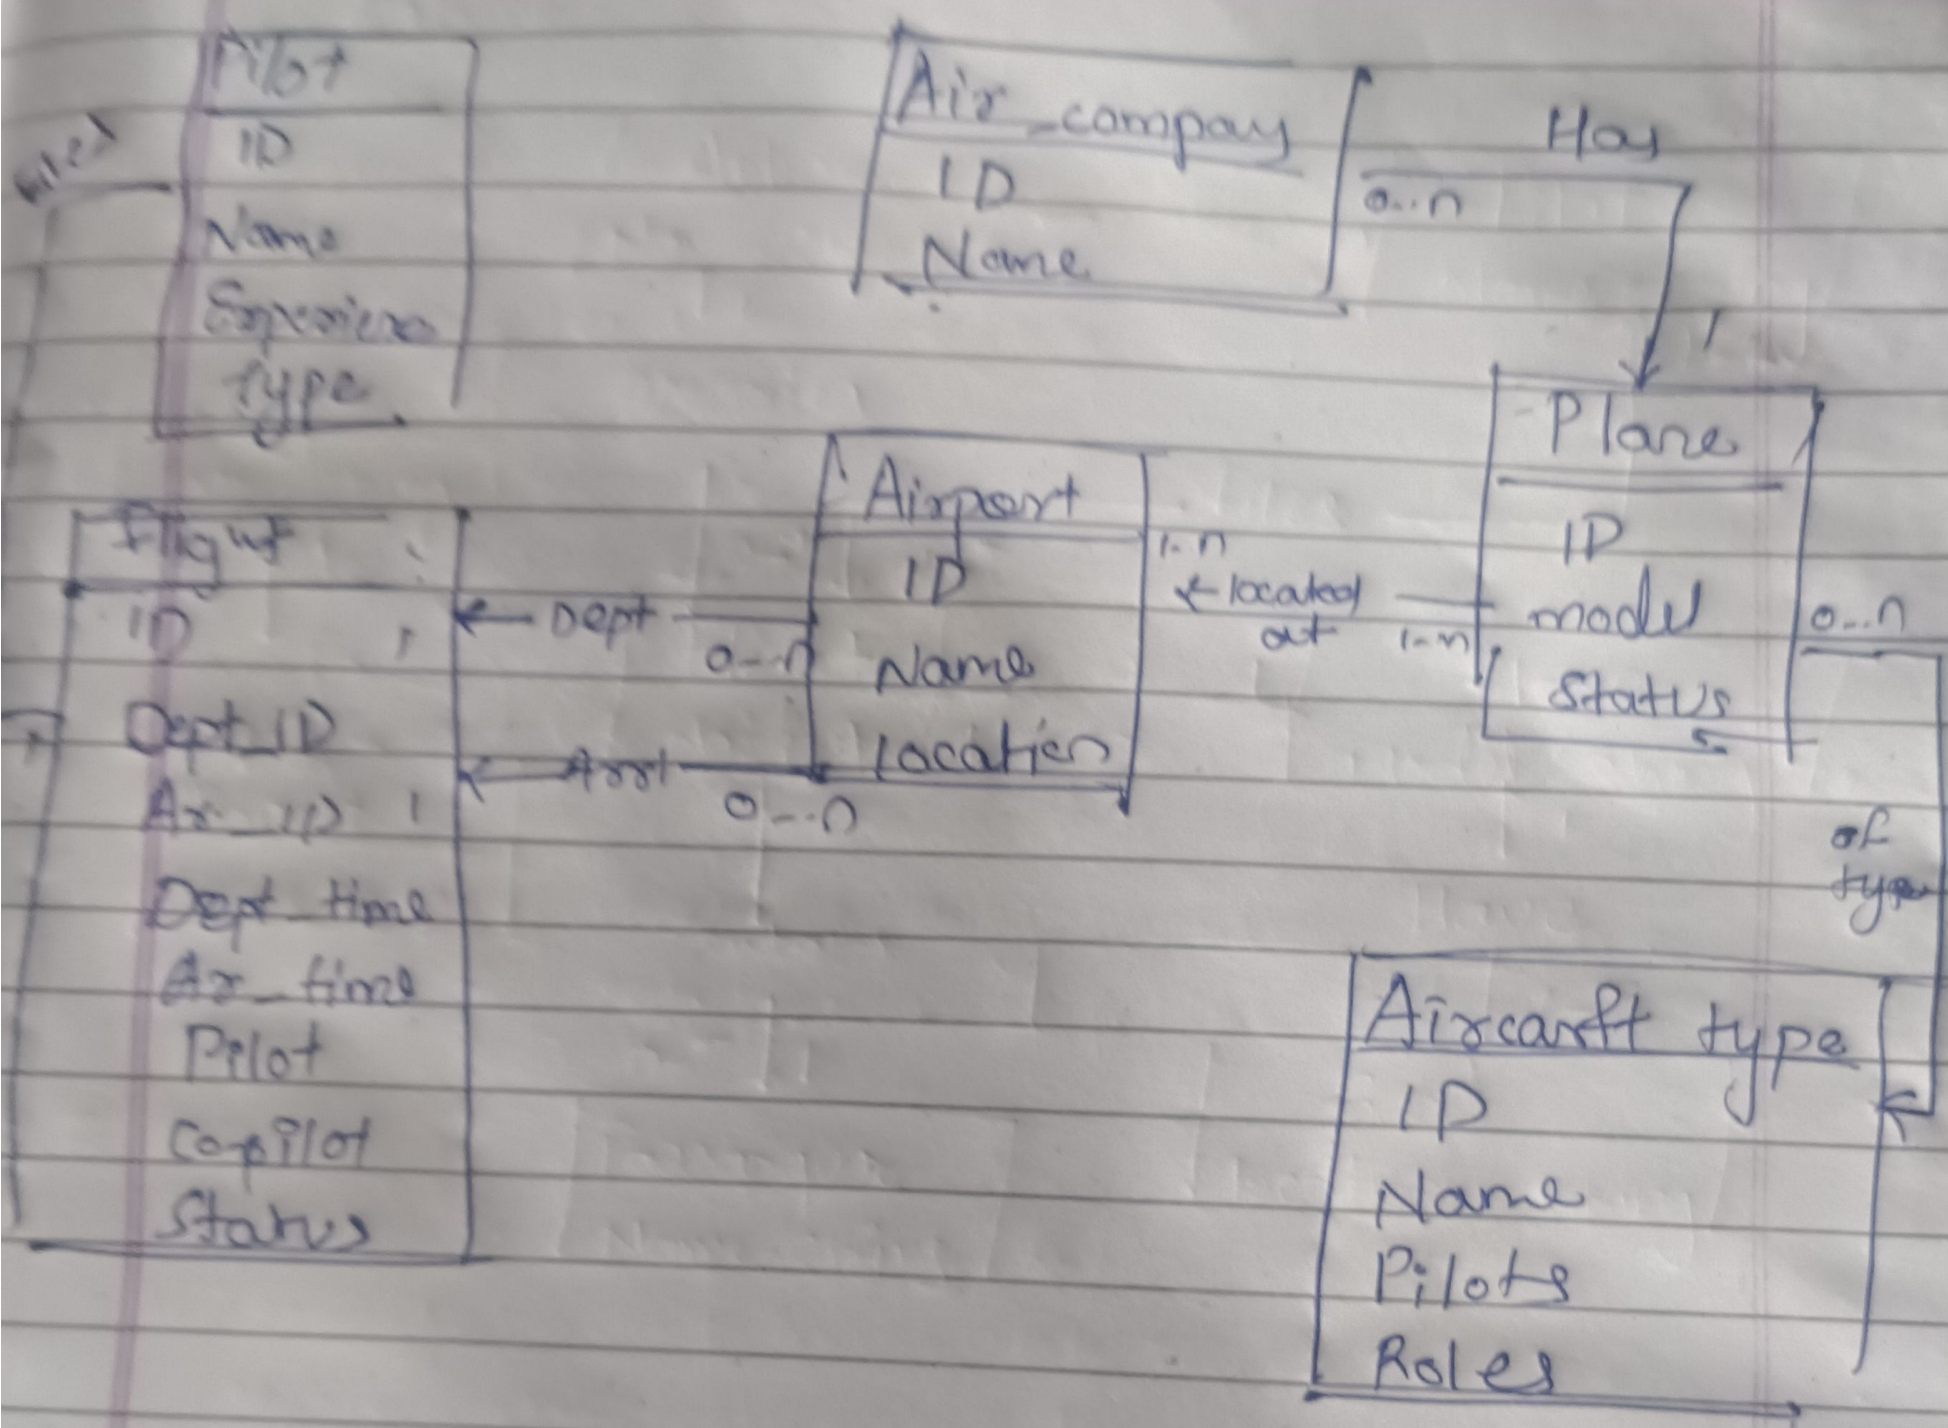 Pilot
ID
Name
Experience
type
Air_compay
ID
Name
Has
0...n
1
Plane
ID
model
Status
0...n
of
type
Airport
ID
Name
Location
1-n
located
at
1-n
Dept
0...n
Arrl
0...n
Flight
ID
Dept_ID
Ar_ID
Dept_time
Ar_time
Pilot
Copilot
Status
1
1
Aircarft type
ID
Name
Pilots
Roles